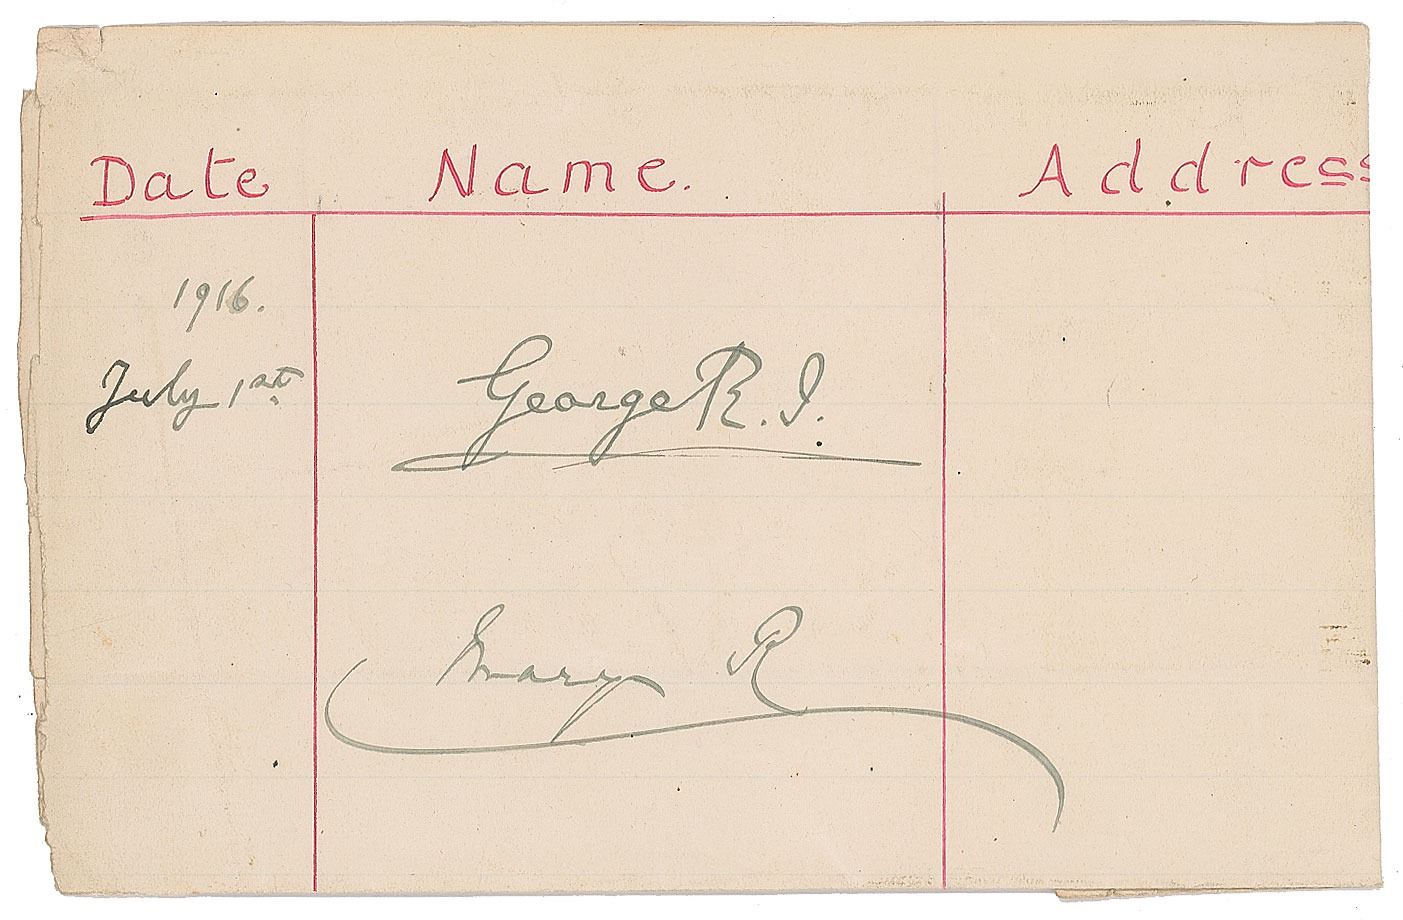 Date Name. Address
1916.
July 1st. George R.I.
Mary R